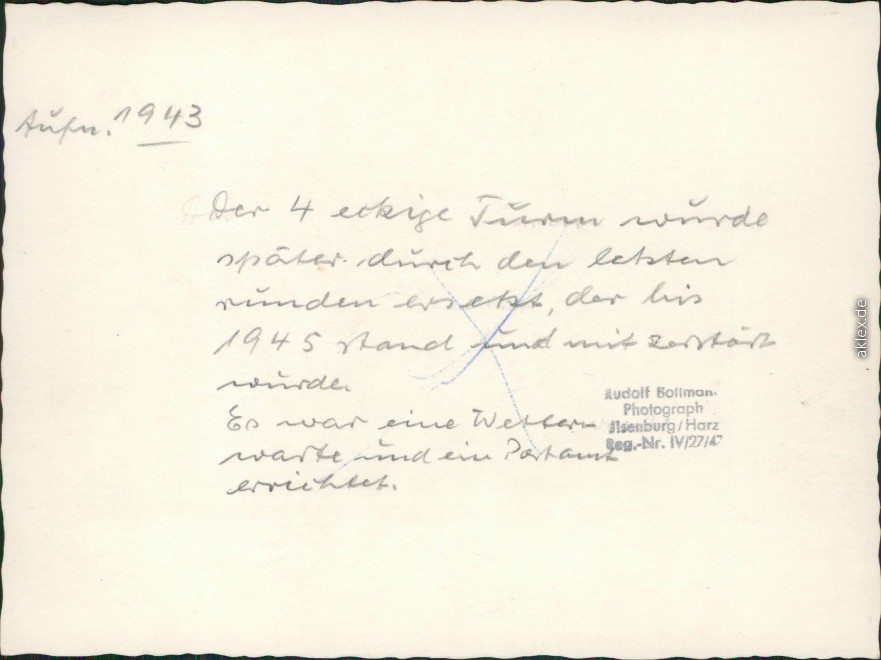 Aufn. 1943
Der 4 eckige Turm wurde
später durch den letzten
runden ersetzt, der bis
1945 stand und mit zerstört
wurde.
Es war eine Wetter-
warte und ein Postamt
errichtet.
Rudolf Bollmann
Photograph
Ilsenburg/Harz
Reg.-Nr. IV/27/47
aklex.de